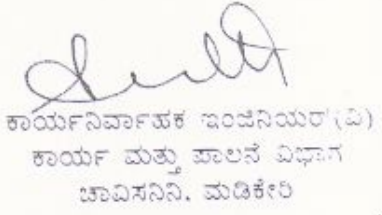 ಕಾರ್ಯನಿರ್ವಾಹಕ ಇಂಜಿನಿಯರ್(ವಿ)
ಕಾರ್ಯ ಮತ್ತು ಪಾಲನೆ ವಿಭಾಗ
ಚಾವಿಸನಿನಿ. ಮಡಿಕೇರಿ